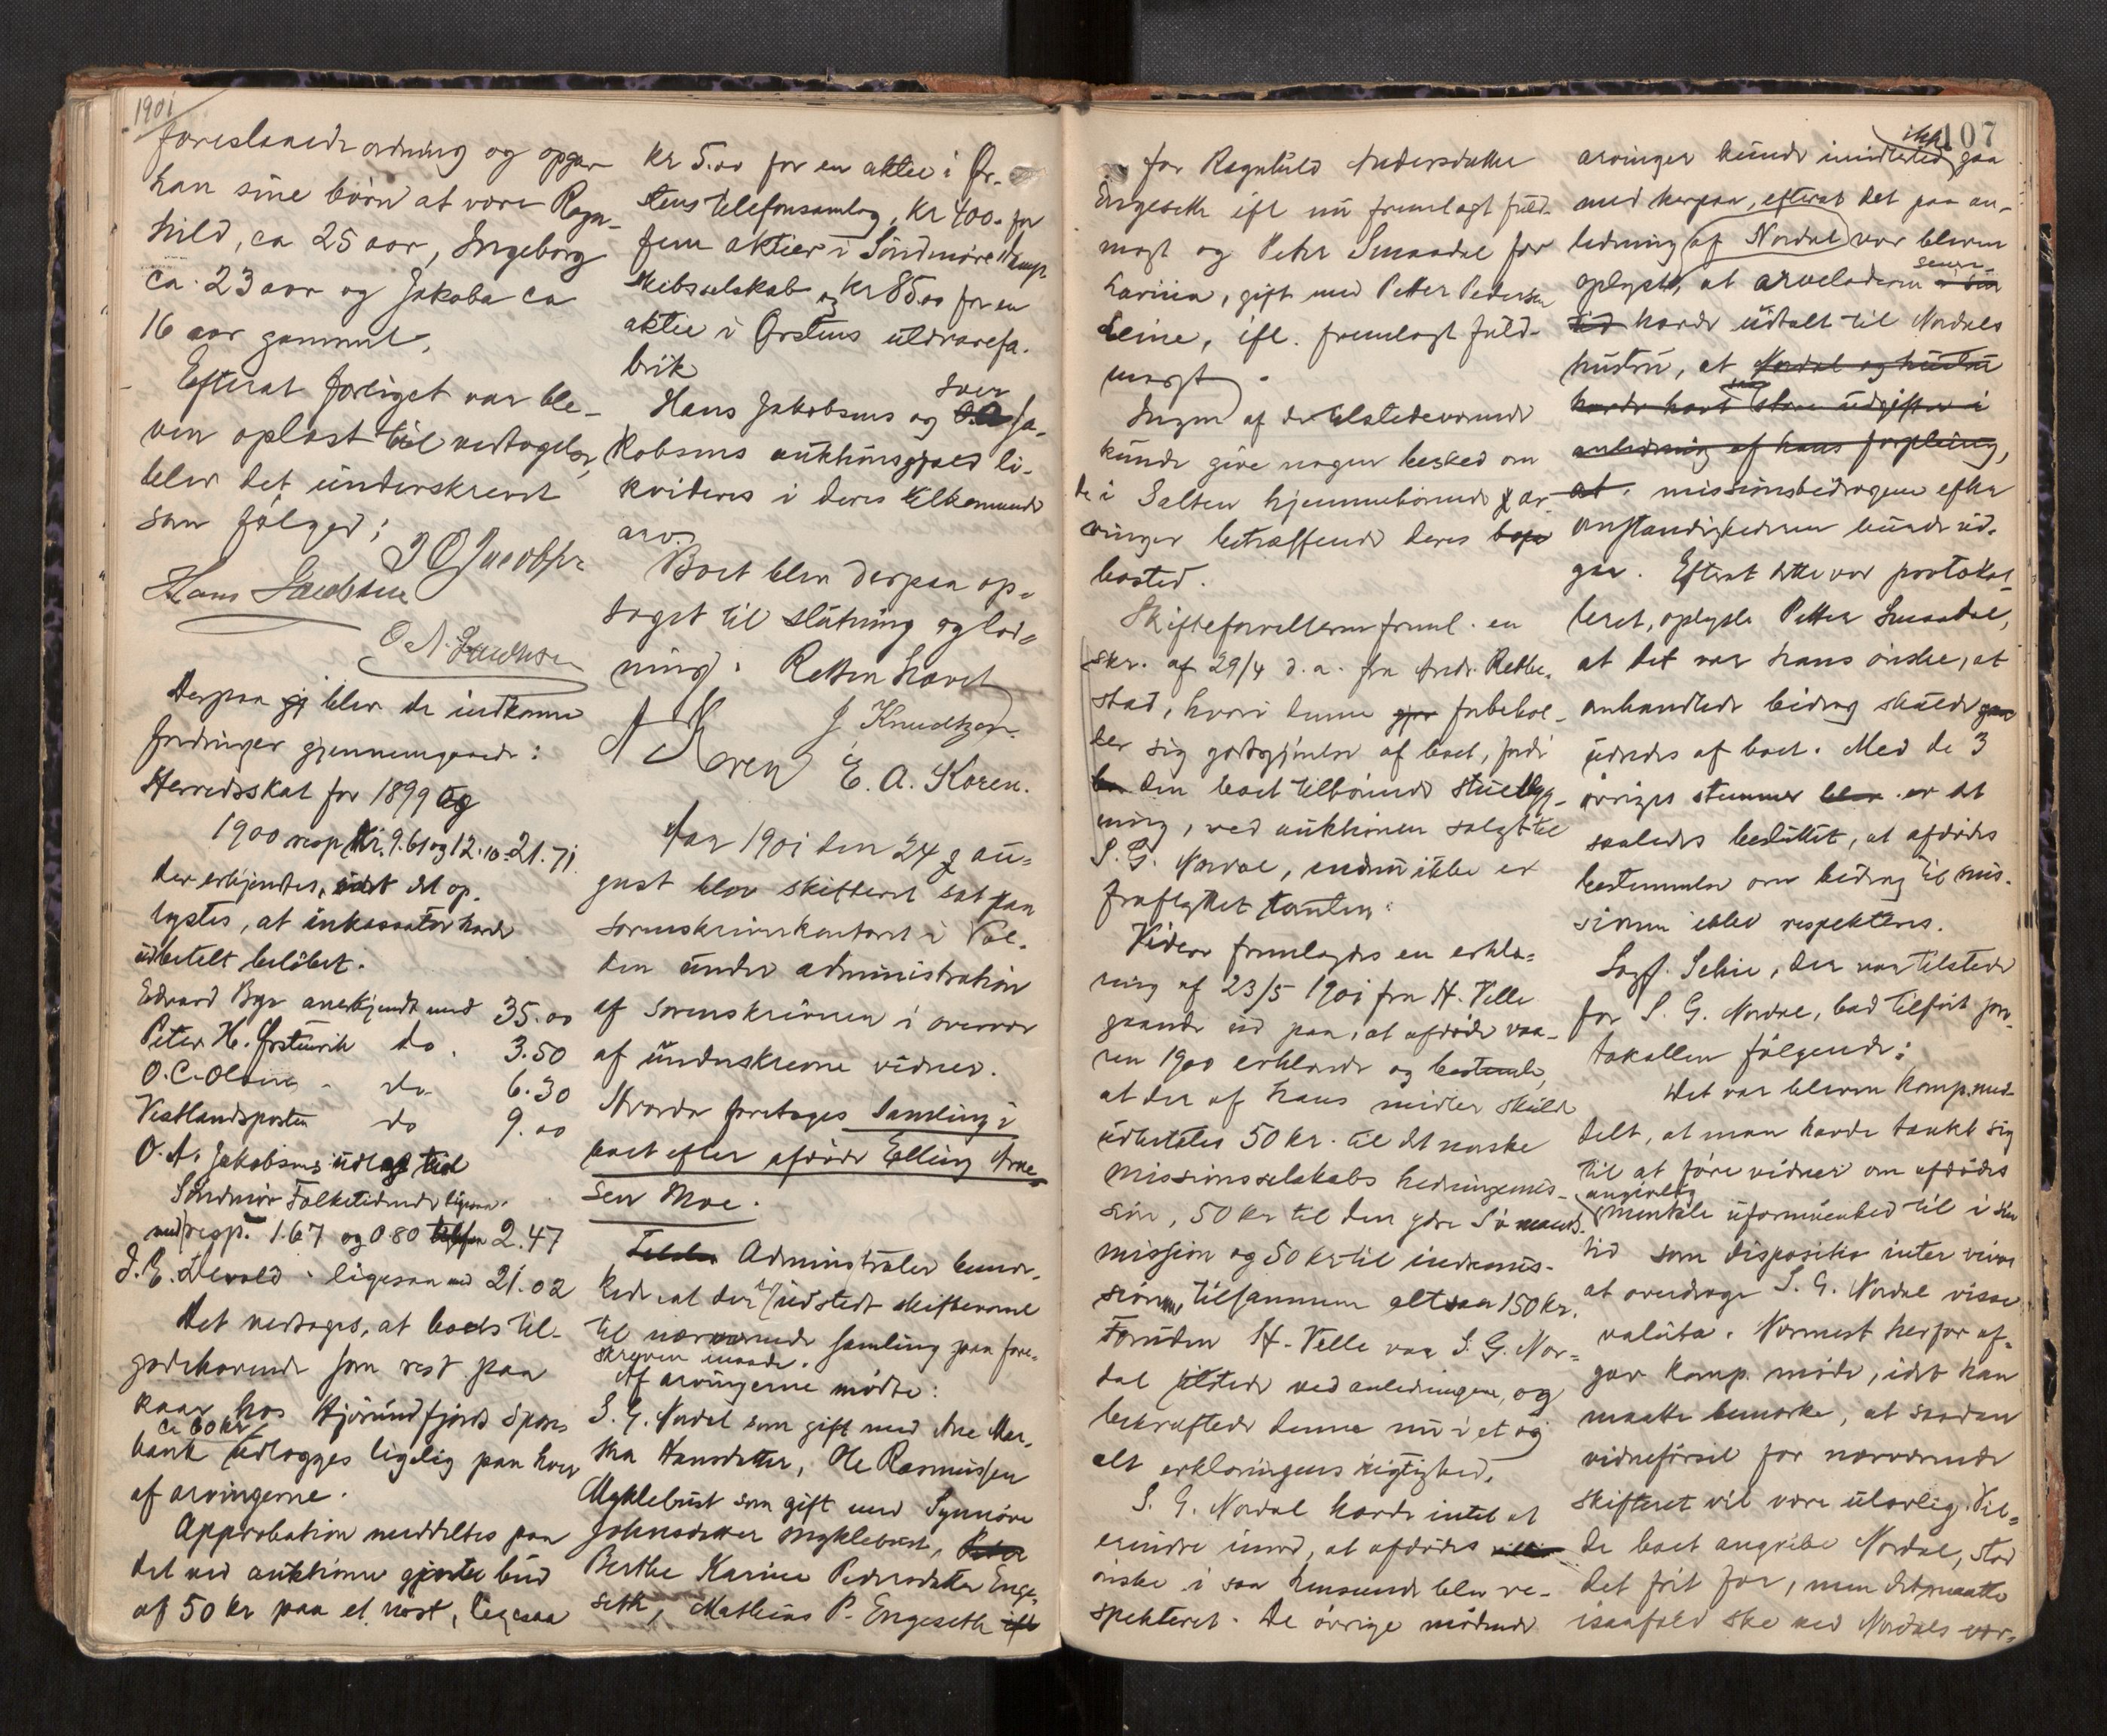 1901
foreslaaede ordning og opgav
han sine børn at være Ragn-
hild, ca 25 aar, Ingeborg
ca. 23 aar og Jakoba ca
16 aar gammel.
Efterat forliget var ble-
ven oplæst til vedtagelse,
blev det underskrevet
som følger:
J O Jacobsen
Hans Jacobsen
O A Jacobsen
Derpaa blev de indkomne
fordringer gjennemgaaede:
Herredsskat for 1899 og
1900 resp. Kr. 9.61 og 12.10 = 21.71.
der erkjendtes, idet det op-
lystes, at inkassator havde
udbetalt beløbet.
Edvard Bye anerkjendt med 35.00
Peter H. Ørstenvik do. 3.50
O. C. Olsen - do 6.30
Vestlandsposten do 9.00
O. A. Jakobsens udlæg til
Søndmør Folketidende ligesaa
med resp. 1.67 og 0.80 2.47
J. E. Devold - ligesaa med 21.02
Det vedtages, at boets til-
godehavende som rest paa
kaar hos Hjørundfjords Spare-
ca 60 kr
bank udlægges ligelig paa hver
af arvingerne.
Approbation meddeltes paa
det ved auktionen gjorte bud
af 50 kr paa et nøst, ligesaa
kr 5.00 for en aktie i Ør-
stens telefonsamlag, kr 400. for
fem aktier i Søndmøre Damp
skibsselskab og kr 85.00 for en
aktie i Ørstens uldvarefa-
brik
Hans Jakobsens og Iver Ja-
kobsens auktionsgjæld li-
kvideres i deres tilkommende
arv.
Boet blev derpaa op-
taget til slutning og lod-
ning. Retten hævet
A Koren J. Knudtzon.
E. A. Koren.
Aar 1901 den 24 au-
gust blev skifteret sat paa
sorenskriverkontoret i Vol-
den under administration
af sorenskriveren i overvær
af underskrevne vidner.
Hvorda foretoges Samling i
boet efter afdøde Elling Arne-
sen Moe.
Administrator bemær-
kede at der er udstedt skiftevarsel
til nærværende samling paa fore-
skreven maade.
Af arvingerne mødte:
S. G. Nordal som gift med Ane Mar-
tha Hansdatter, Ole Rasmussen
Myklebust som gift med Synnøve
Johnsdatter Myklebust, Peter
Berthe Karine Pedersdatter Enge-
seth, Mathias P. Engeseth ifl
107
for Ragnhild Andersdatter
Engeseth ifl nu fremlagt fuld-
magt og Peter Smaadal for
Lavina, gift med Petter Pedersen
Leine, ifl. fremlagt fuld-
magt.
Ingen af de tilstedeværende
kunde give nogen besked om
de i Salten hjemmehørende ar-
vinger betræffende deres bopæ
bosted.
Skifteforvalteren freml. en
skr. af 29/4 d. a. fra Andr. Rebbe-
stad, hvori denne forbehol-
der sig godtgjørelse af boet, fordi
den boet tilhørende stuebyg-
ning, ved auktionen solgt til
S. G. Nordal, endnu ikke er
fraflyttet tomten.
Videre fremlagdes en erklæ-
ring af 23/5 1901 fra H. Velle
gaaende ud paa, at afdøde vaa-
ren 1900 erklærede og bestemte,
at der af hans midler skulde
udbetales 50 kr. til det norske
missionsselskabs hedningemis-
sion, 50 kr til den ydre Sømands-
mission og 50 kr til indremis-
sionen, tilsammen altsaa 150 kr.
Foruden H. Velle var S. G. Nor-
dal tilstede ved anledningen, og
bekræftede denne nu i et og
alt erklæringens rigtighed.
S. G. Nordal havde intet at
erindre imod, at afdødes
ønske i saa henseende blev re-
spekteret. De øvrige mødende
ikke
arvinger kunde imidlertid gaa
med herpaa, efterat det paa an-
ledning af Nordal var bleven
senere
oplyst, at arveladeren i sin
tid havde udtalt til Nordals
hustru, at Nordal og hustru
havde havt store udgifter i
anledning af hans forpleining,
at missionsbidragene efter
omstændighederne burde ud-
gaa. Efterat dette var protokol-
leret, oplyste Petter Smaadal,
at det var hans ønske, at
omhandlede bidrag skulde
udredes af boet. Med de 3
øvriges stemmer blev er det
saaledes besluttet, at afdødes
bestemmelse om bidrag til mis-
sionen ikke respekteres.
Sagf. Schie, der var tilstede
for S. G. Nordal, bad tilført pro-
tokollen følgende:
Det var bleven komp. med-
delt, at man havde tænkt sig
til at føre vidner om afdødes
angivelig
mentale uformuenhed til i sin
tid som dispositio inter vivos
at overdrage S. G. Nordal visse
valuta. Nærmest herfor af-
gav komp. møde, idet han
maatte bemærke, at saadan
vidneførsel for nærværende
skifteret vil være ulovlig. Vil-
de boet angribe Nordal, stod
det frit for, men det maatte
isaafald ske ved Nordals vær-